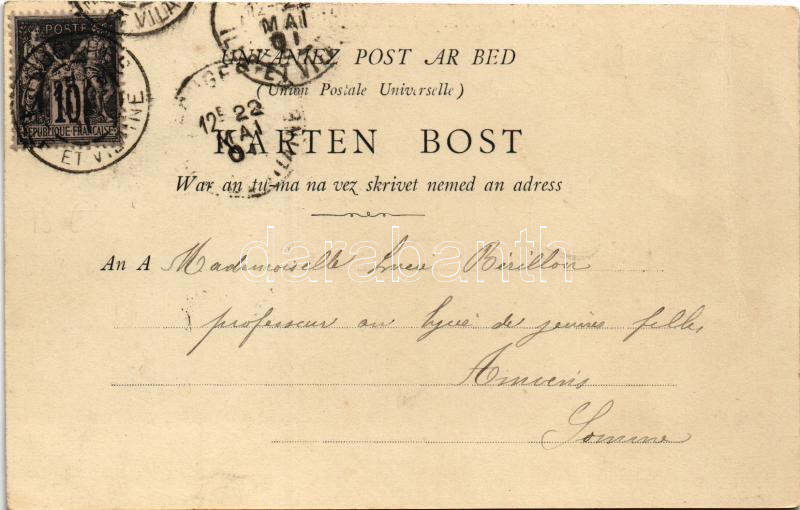 POSTE
10
REPUBLIQUE FRANÇAISE
ET VILAINE
MAI
01
ET VIL
12E 22
MAI
UNVANIEZ POST AR BED
(Union Postale Universelle)
KARTEN BOST
War an tu-ma na vez skrivet nemed an adress
An A Mademoiselle Lucie Bérillon
professeur au lycée de jeunes filles
Amiens
Somme
darabanth